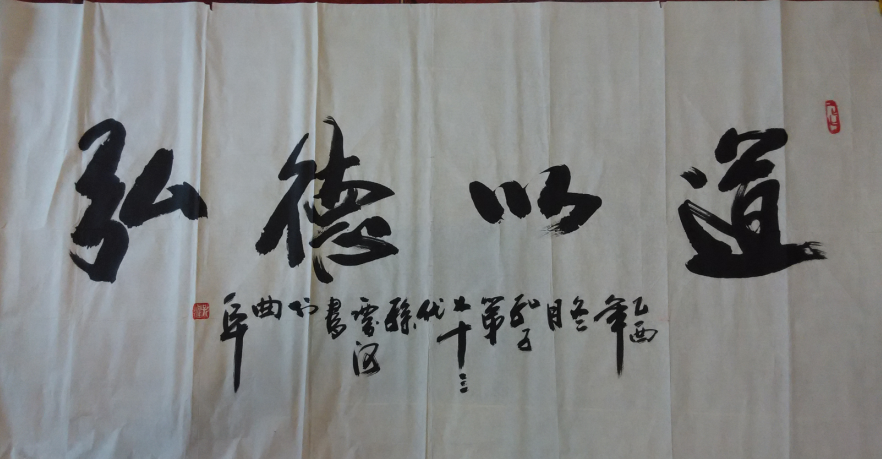 道以德弘
乙酉年冬月孔子第七十三代孫書於曲阜